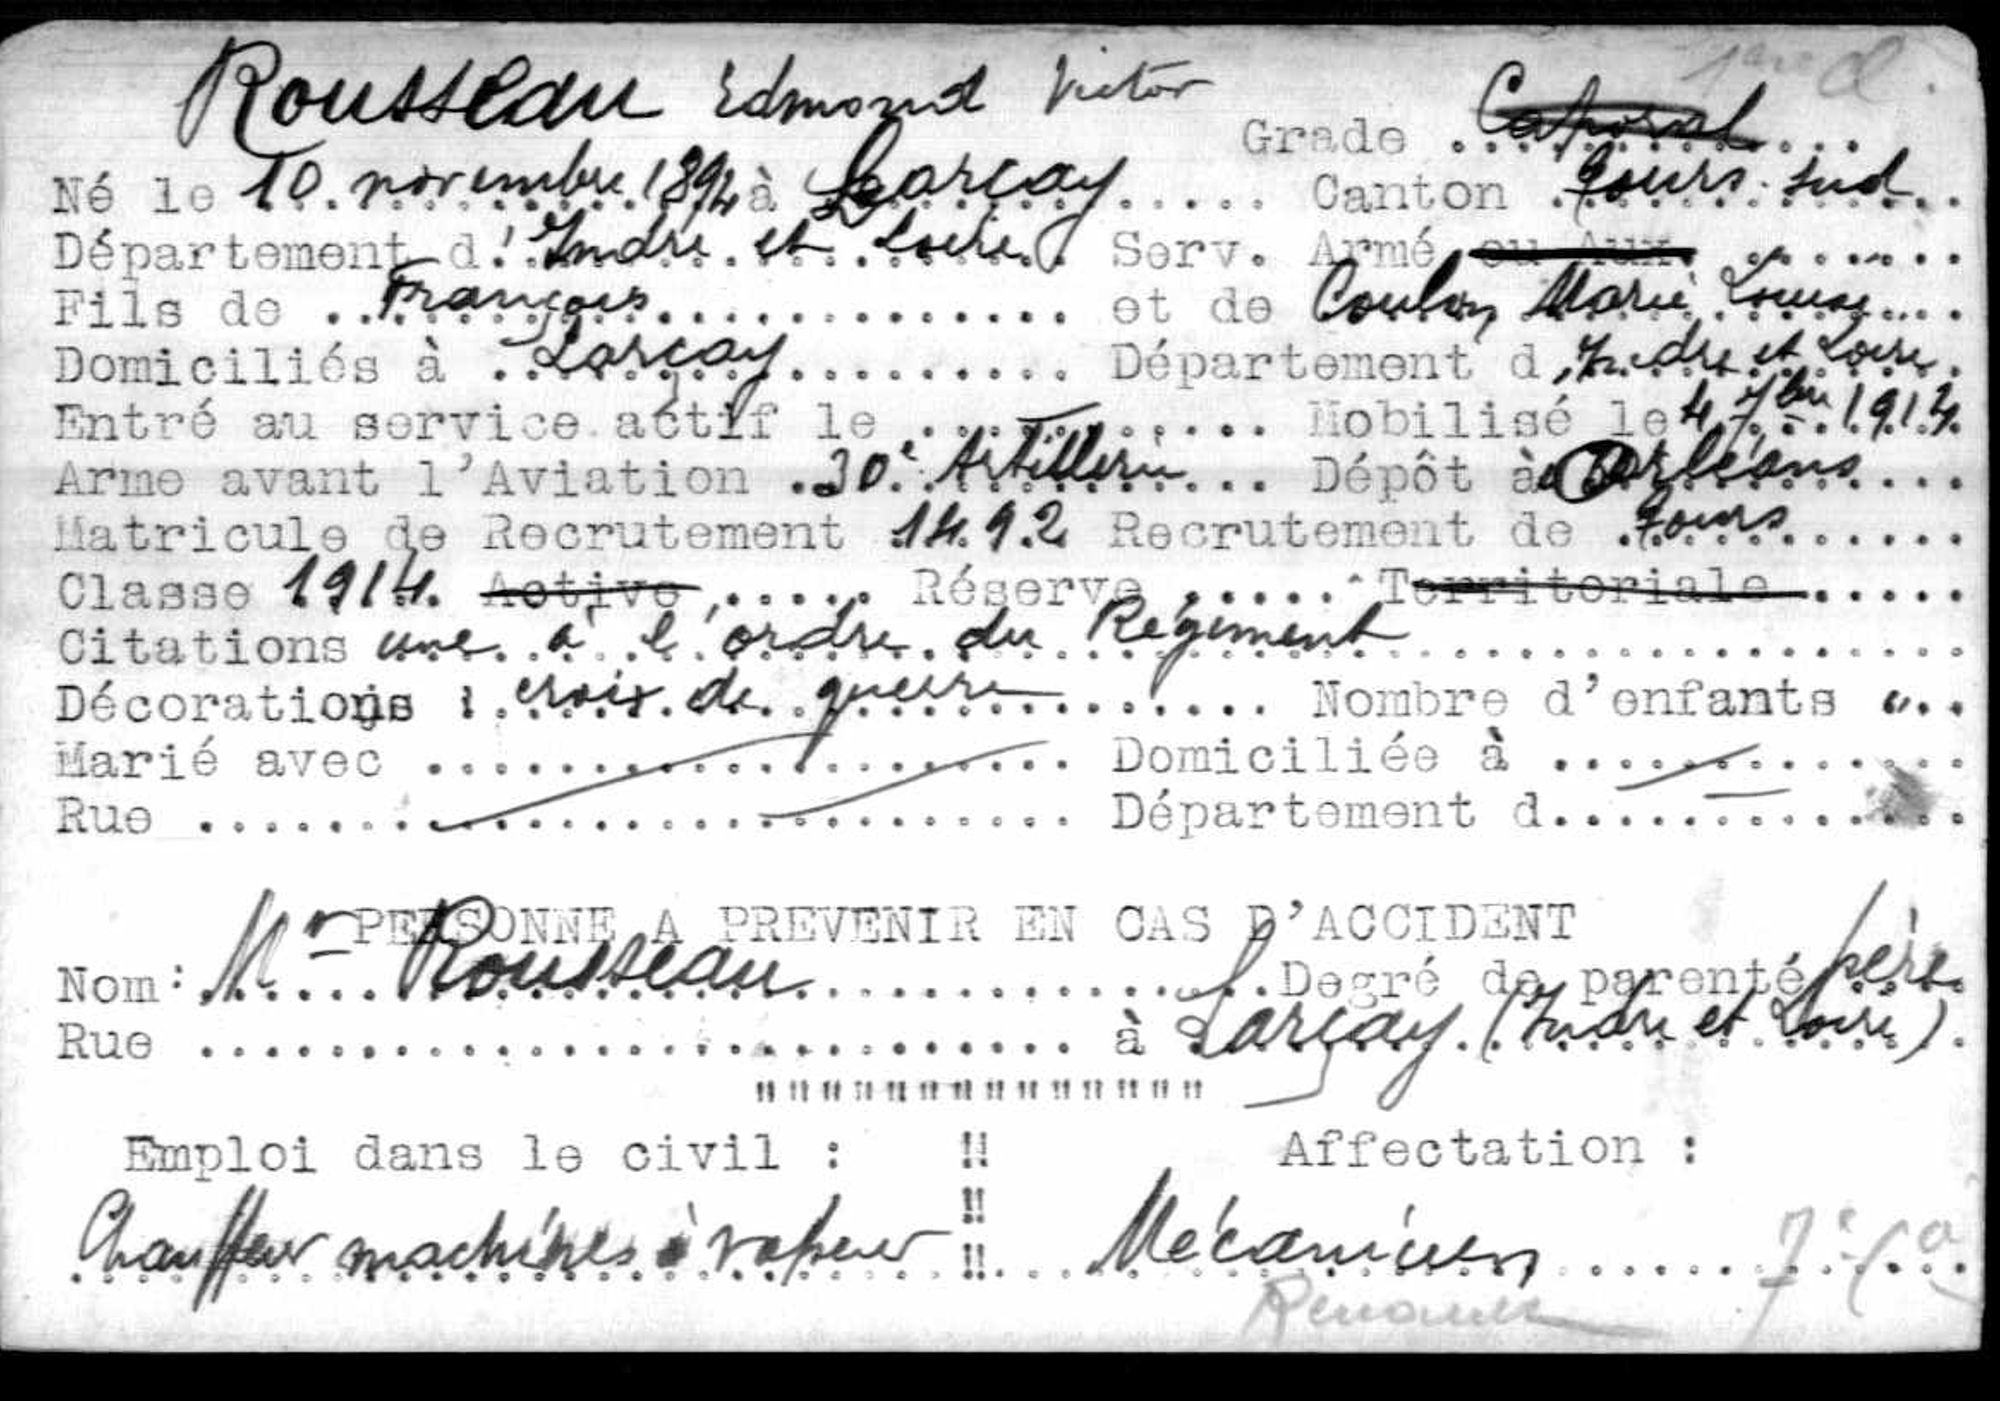 1ère Cl.
Rousseau Edmond Victor
Grade Caporal
Né le 10 novembre 1894 à Larçay Canton Tours Sud
Département d' Indre et Loire Serv. Armé ou Aux.
Fils de François et de Coulon Marie Louise
Domiciliés à Larçay Département d' Indre et Loire
Entré au service actif le Mobilisé le 4 7bre 1914
Arme avant l'Aviation 30e Artillerie Dépôt à Orléans
Matricule de Recrutement 1492 Recrutement de Tours
Classe 1914 Active Réserve Territoriale
Citations une à l'ordre du Régiment
Décorations : croix de guerre Nombre d'enfants "
Marié avec Domiciliée à
Rue Département d
PERSONNE A PREVENIR EN CAS D'ACCIDENT
Nom : Mr Rousseau Degré de parenté père
Rue à Larçay (Indre et Loire)
Emploi dans le civil : Affectation :
Chauffeur machines à vapeur Mécanicien
Renault